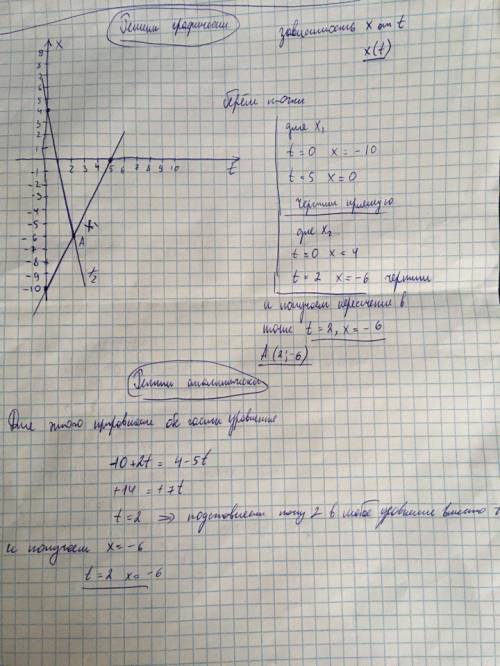 Решим графически
зависимость x от t
x(t)
Берём точки
для x₁
t=0 x=-10
t=5 x=0
Чертим прямую
для x₂
t=0 x=4
t=2 x=-6 чертим
и получаем пересечение в
точке t=2, x=-6
A(2;-6)
x
9
8
7
6
5
4
3
2
1
2 3 4 5 6 7 8 9 10
t
-1
-2
-3
-4
-5
-6
-7
-8
-9
-10
A
x₁
Решим аналитически
Для этого приравниваем обе части уравнения
-10+2t=4-5t
+14=+7t
t=2 => подставляем нашу 2 в любое уравнение вместо t
и получаем x=-6
t=2 x=-6